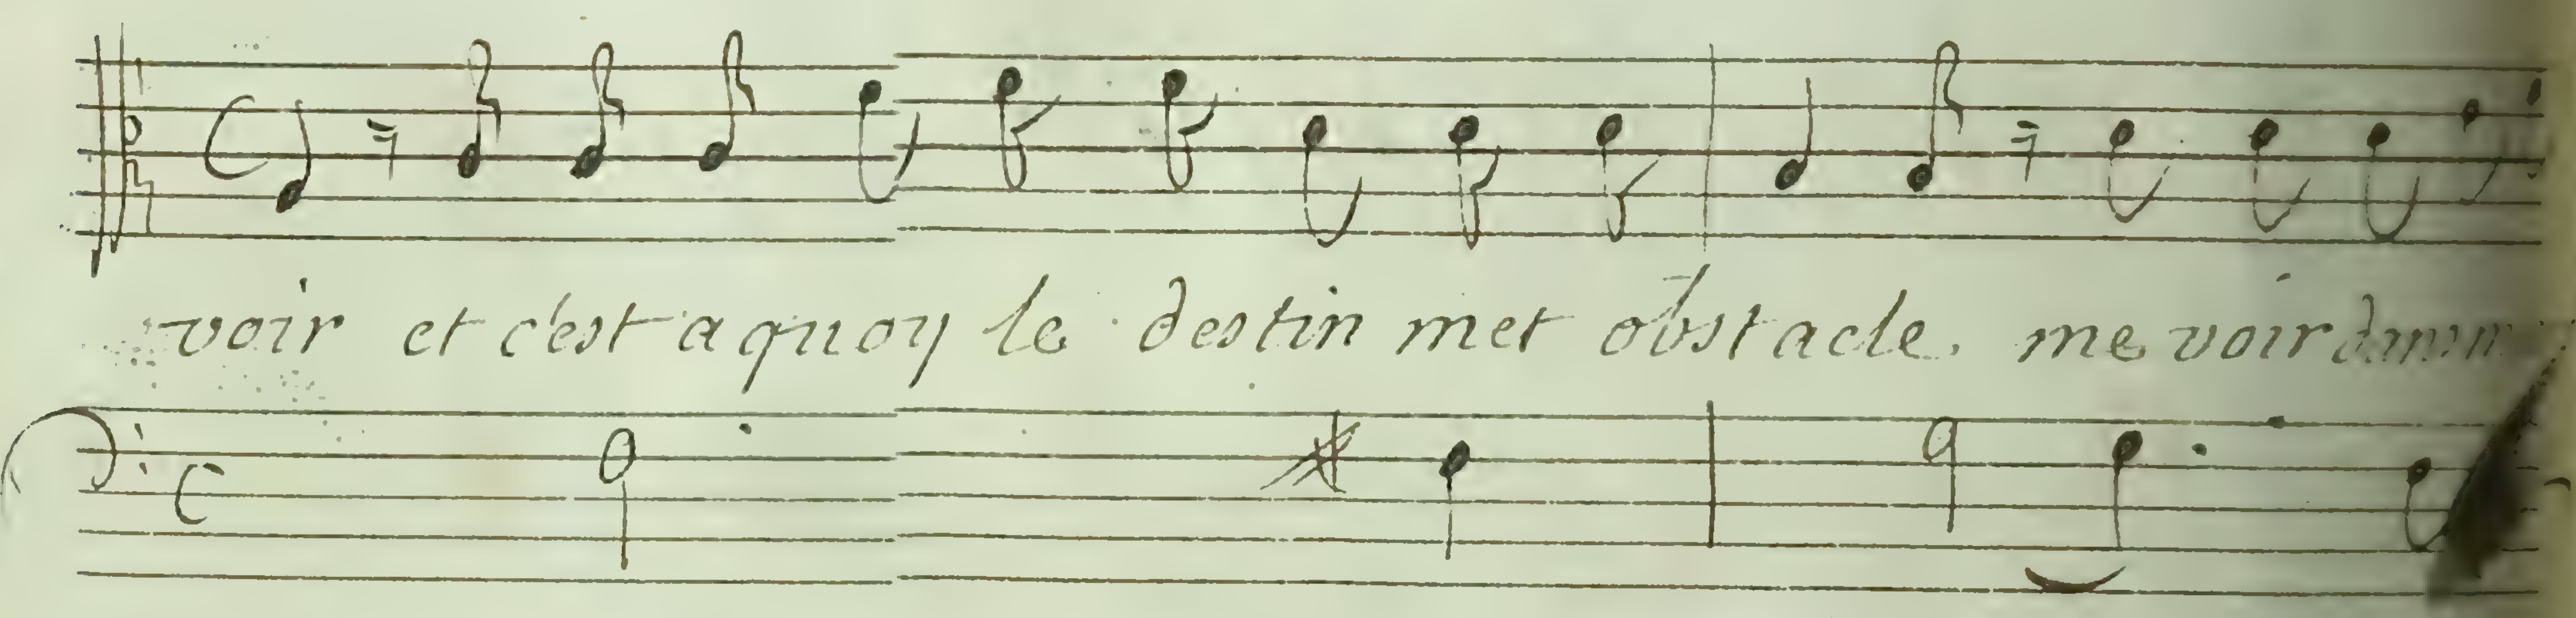 voir et c'est a quoy le destin met obstacle. me voir